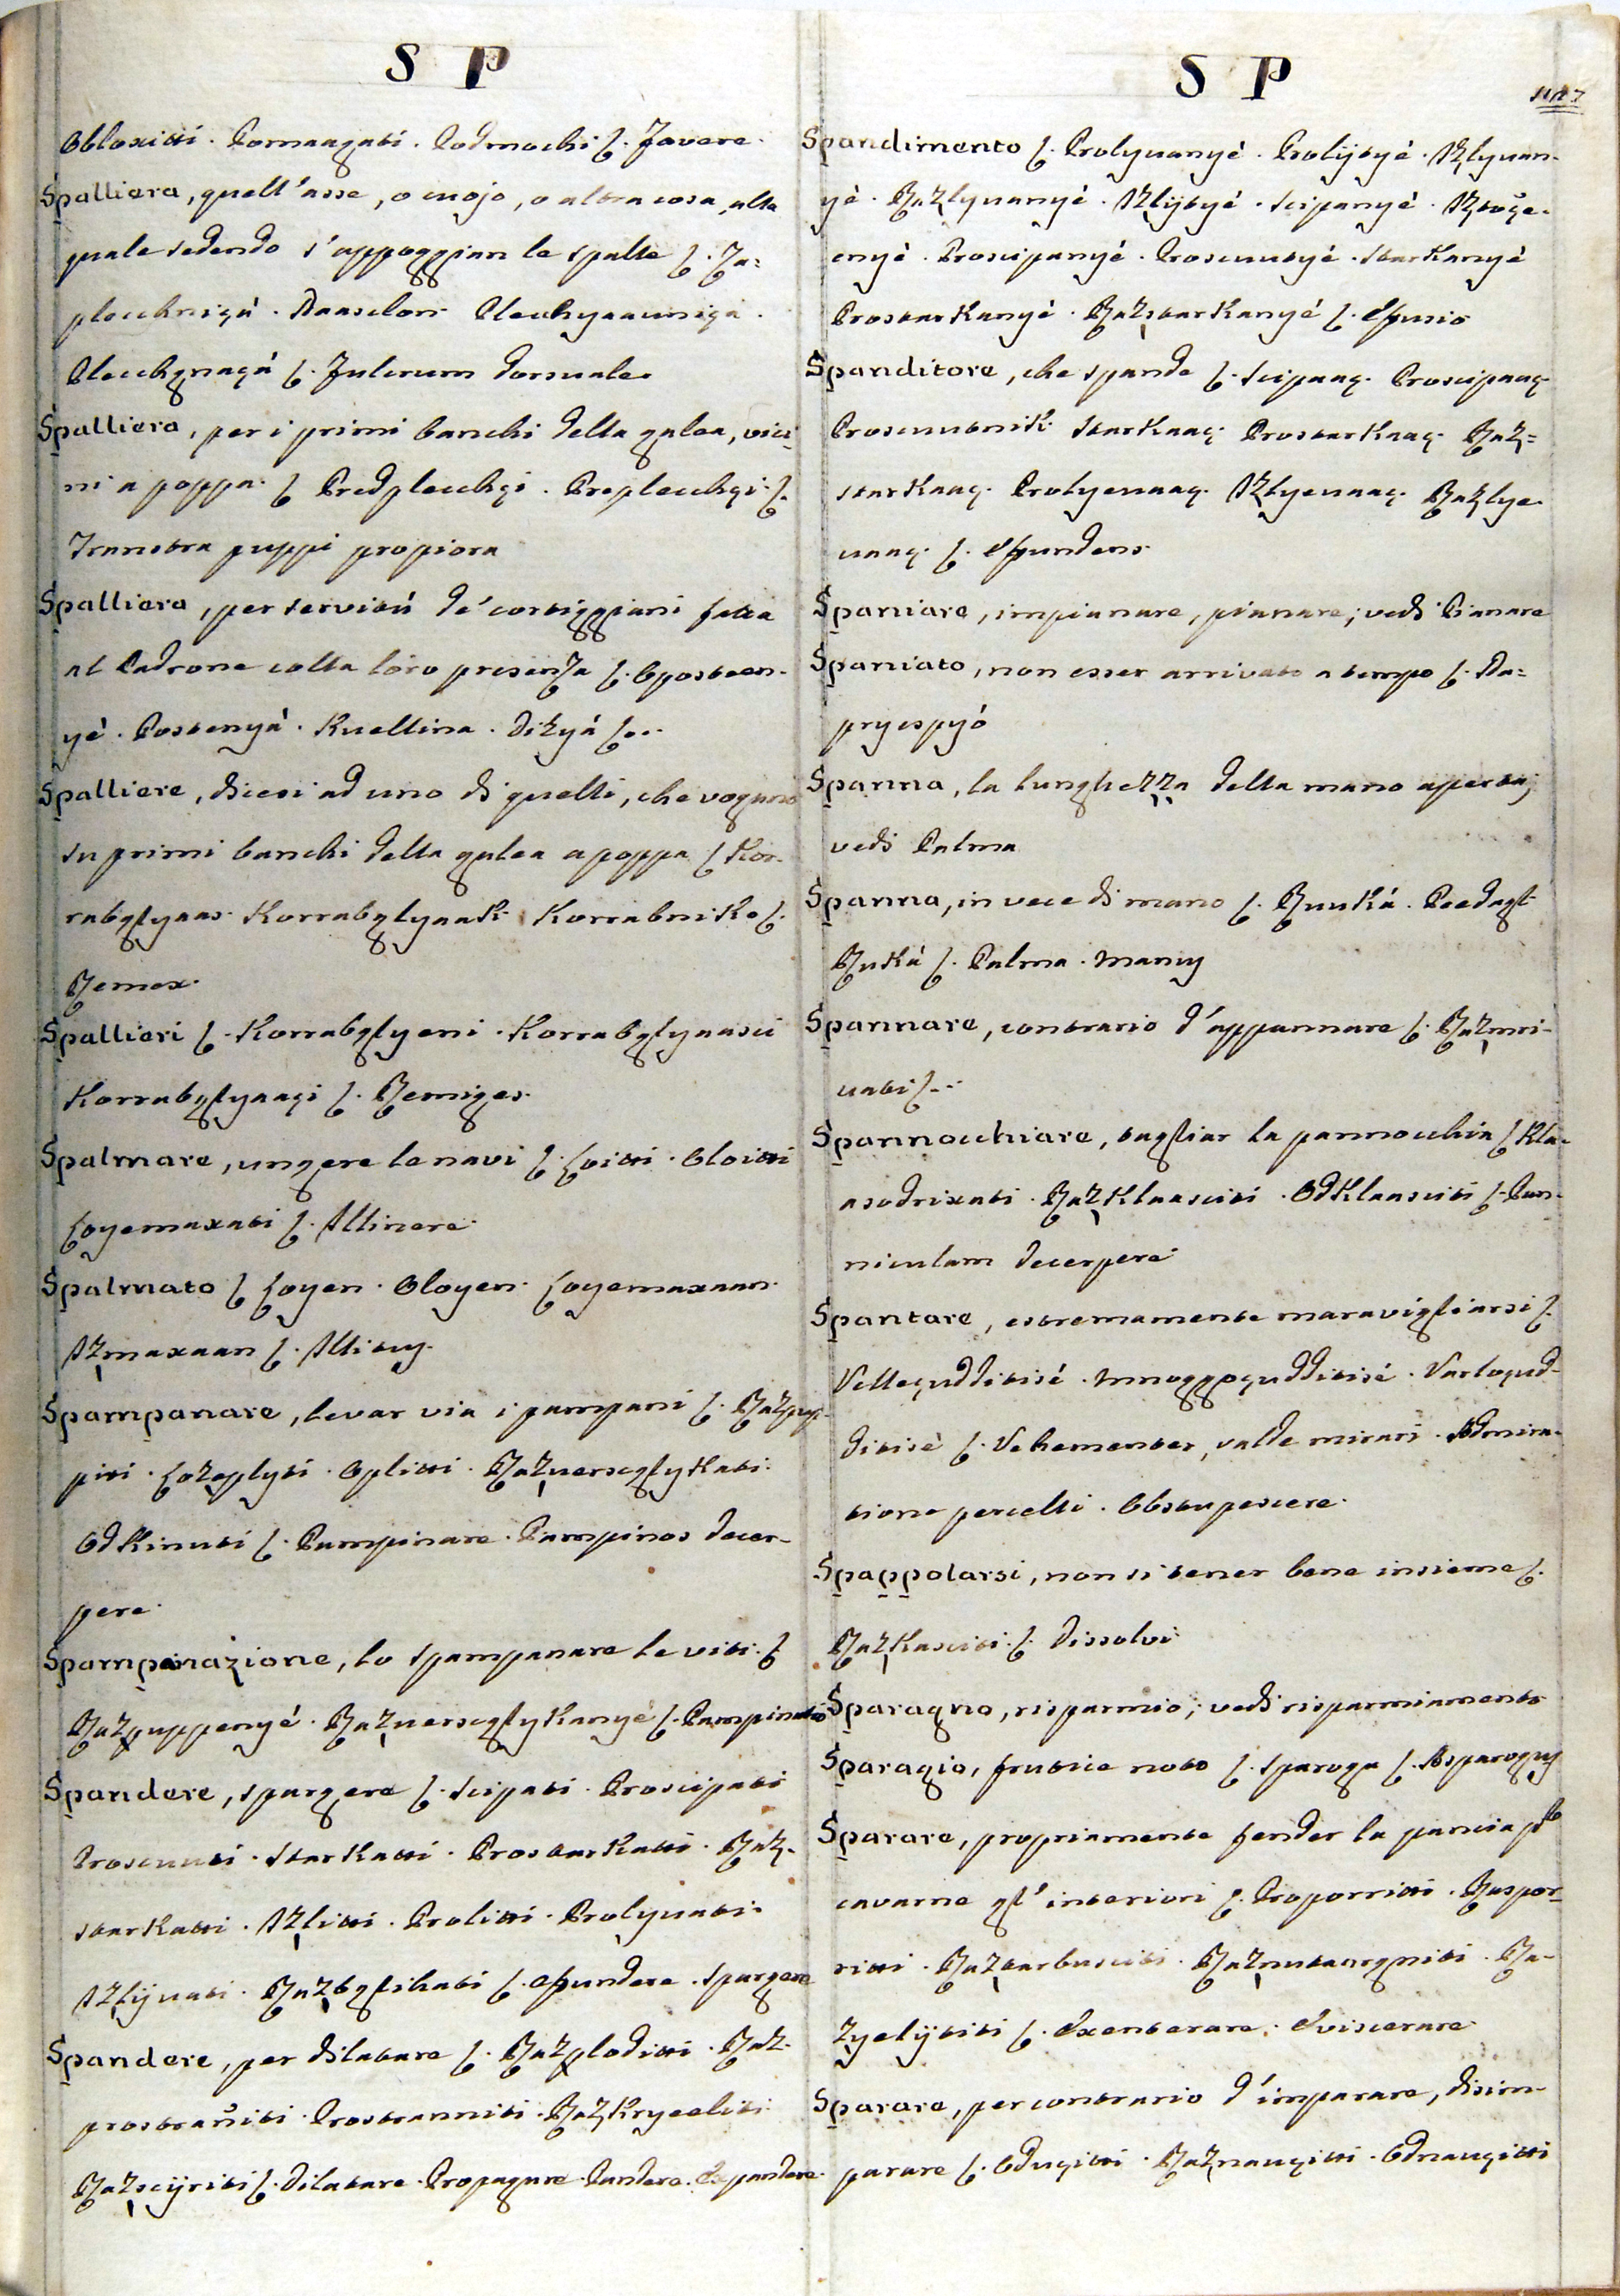 S P
Obloxitti. Pomaagati. Podmochi ſ. Favere.
Spalliera, quell'asse, o cuojo, o altra cosa, alla
quale sedendo s'appoggian le spalle ſ. Za=
plecchniçà. Naaslon. Plecchyaauniça.
Plecchgnaçá ſ. Fulcrum dorsuale.
Spalliera, per i primi banchi della galea, vici
ni a poppa. ſ Predplecchçi. Preplecchçi. ſ.
Transtra puppi propiora
Spalliera, per servitù de' cortiggiani fatta
al Padrone colla loro presenza ſ. Oposteen-
yè. Postenyà. Kuellina. Dikyá ſ...
Spalliere, dicesi ad uno di quelli, che vogano
su primi banchi della galea a poppa ſ Kor-
rabglyaar. Korrabglyaak. Korrabniko ſ.
Remex.
Spallieri ſ. Korrabglyeni. Korrabglyaasci
Korrabglyaaçi ſ. Remiges.
Spalmare, ungere le navi ſ. Loitti. Oloitti
Loyemaxati ſ. Illinere.
Spalmato ſ Loyen. Oloyen. Loyemaxaan.
Izmaxaan ſ. Illitus.
Spampanare, levar via i pampani ſ. Razpup-
piti. Lozoplyti. Oplitti. Razuersçglykati.
Odkinuti ſ. Pampinare. Pampinos decer-
pere.
Spampanazione, lo spampanare le viti. ſ
Razpuppenyé. Razuersçglykanyé ſ. Pampinatio
Spandere, spargere ſ. Scipati. Proscipati
Prosuuti. Starkatti. Prostarkatti. Raz-
starkatti. Izlitti. Prolitti. Prolyuati.
Izlijuati. Razbglihati ſ. Effundere. Spargere
Spandere, per dilatare ſ. Razploditti. Raz-
prostrañiti. Prostranniti. Razkryeeliti.
Razscijriti ſ. Dilatare. Propagare. Pandere. Expandere.
S P
Spandimento ſ. Prolyuanyé. Prolijtyé. Izlyuan-
yé. Razlyuanyé. Izlijtyé. Scipanyé. Iztoçe-
enyé. Proscipanyé. Prosuutyé. Starkanyé
Prostarkanyé. Razstarkanyé ſ. Effusio
Spanditore, che spande ſ. Scipaaç. Proscipaaç.
Prosuutnik. Starkaaç. Prostarkaaç. Raz=
starkaaç. Prolyeuaaç. Izlyeuaaç. Razlye-
uaaç. ſ. Effundens.
Spaniare, impianare, pianare; vedi Pianare
Spaniato, non esser arrivato a tempo ſ. Na=
pryespyó
Spanna, la lunghezza della mano aperta;
vedi Palma
Spanna, in vece di mano ſ. Ruuká. Peedagl
Ruká ſ. Palma. Manus
Spannare, contrario d'appannare ſ. Razmri-
uati ſ...
Spannocchiare, tagliar la pannocchia ſ Kla-
asodrixati. Razklaasciti. Odklaasciti ſ. Pan-
niculam decerpere
Spantare, estremamente maravigliarsi ſ.
Velleçudditisé. Mnoggoçudditisé. Varloçud-
ditisè ſ. Vehementer, valde mirari. Admira-
tione percelli. Obstupescere.
Spappolarsi, non si tener bene insieme ſ.
Razkasciti. ſ. Dissolvi
Sparagno, risparmio; vedi risparmiamento
Sparagio, frutice noto ſ. Sparoga ſ. Asparagus
Sparare, propriamente fender la pancia p
cavarne gl'interiori ſ. Proporritti. Raspor-
ritti. Raztarbusciti. Raznutaargniti. Ra-
zyelijtiti ſ. Exenterare. Eviscerare
Sparare, per contrario d'imparare, disim-
parare ſ. Oduçitti. Raznauçitti. Odnauçitti